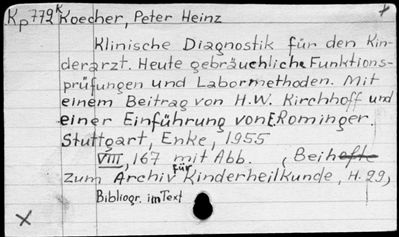 Kp772K Koecher, Peter Heinz
Klinische Diagnostik für den Kin-
derarzt. Heute gebräuchliche Funktions-
prüfungen und Labormethoden. Mit
einem Beitrag von H.W. Kirchhoff und
einer Einführung von E. Rominger.
Stuttgart, Enke, 1955
VIII, 167 mit Abb. , Beihefte
zum Archiv für Kinderheilkunde, H. 29,
Bibliogr. im Text
X